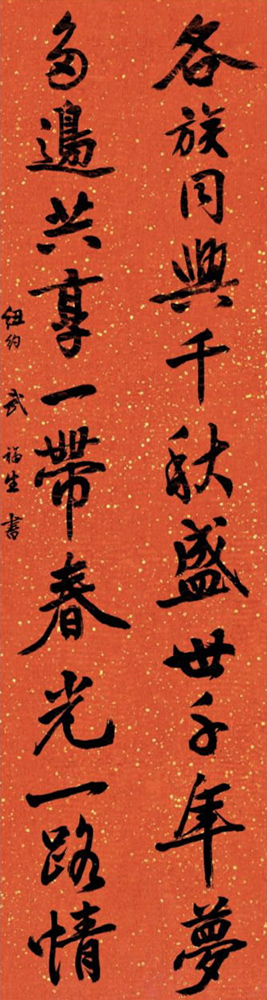 各族同興千秋盛世千年夢
多邊共享一帶春光一路情
紐約 武福生書